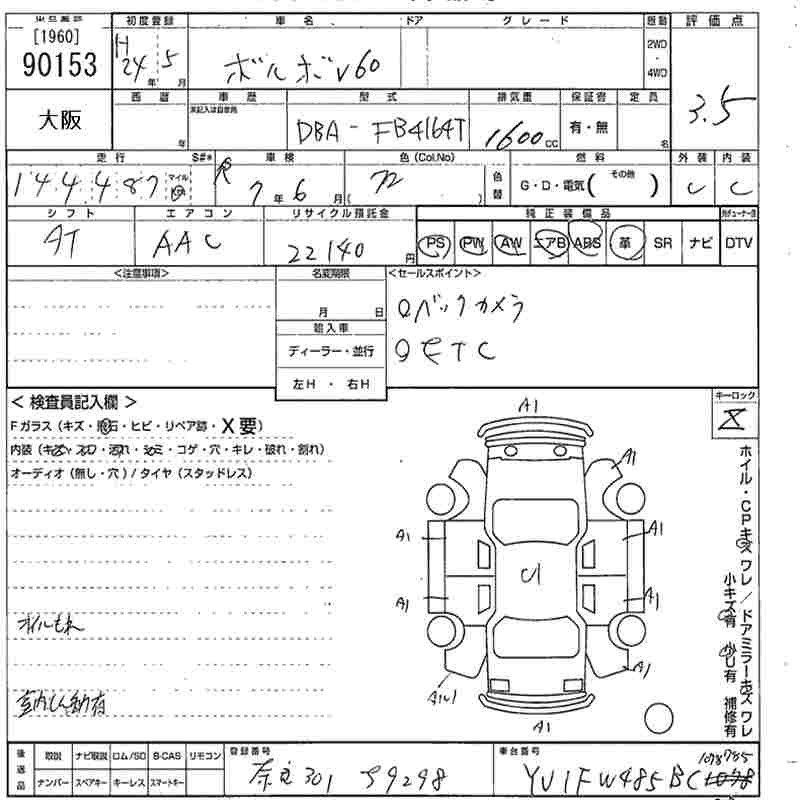 [1960]
90153
大阪
初度登録
H 24年 5月
車名
ボルボV60
ドア
グレード
駆動
2WD
・
4WD
評価点
3.5
西暦
年
車歴
未記入は自家用
型式
DBA-FB4164T
排気量
1600cc
保証書
有・無
定員
名
走行
S#*
144,487
マイル
Km
車検
R 7年 6月
色(Col.No)
色替
燃料
G・D・電気(その他)
外装
C
内装
C
シフト
AT
エアコン
AAC
リサイクル預託金
22140円
純正装備品
PS PW AW エアB ABS 革 SR ナビ
DTV
<注意事項>
名変期限
月 日
輸入車
ディーラー・並行
左H・右H
<セールスポイント>
○バックカメラ
○ETC
<検査員記入欄>
Fガラス(キズ・飛石・ヒビ・リペア跡・X要)
内装(キズ・スレ・汚れ・シミ・コゲ・穴・キレ・破れ・割れ)
オーディオ(無し・穴)/タイヤ(スタッドレス)
オイルもれ
キーロック
X
A1
A1
A1
A1
C1
A1
A1
A1
A1
ホイル・CPキズ ワレ/ドアミラーキズ ワレ
小キズ有 小U有 補修有
後送品
取説 ナビ取説 ロム/SD B-CAS リモコン
ナンバー スペアキー キーレス スマートキー
登録番号
奈良301 す9298
車台番号
YV1FW485BC1078785